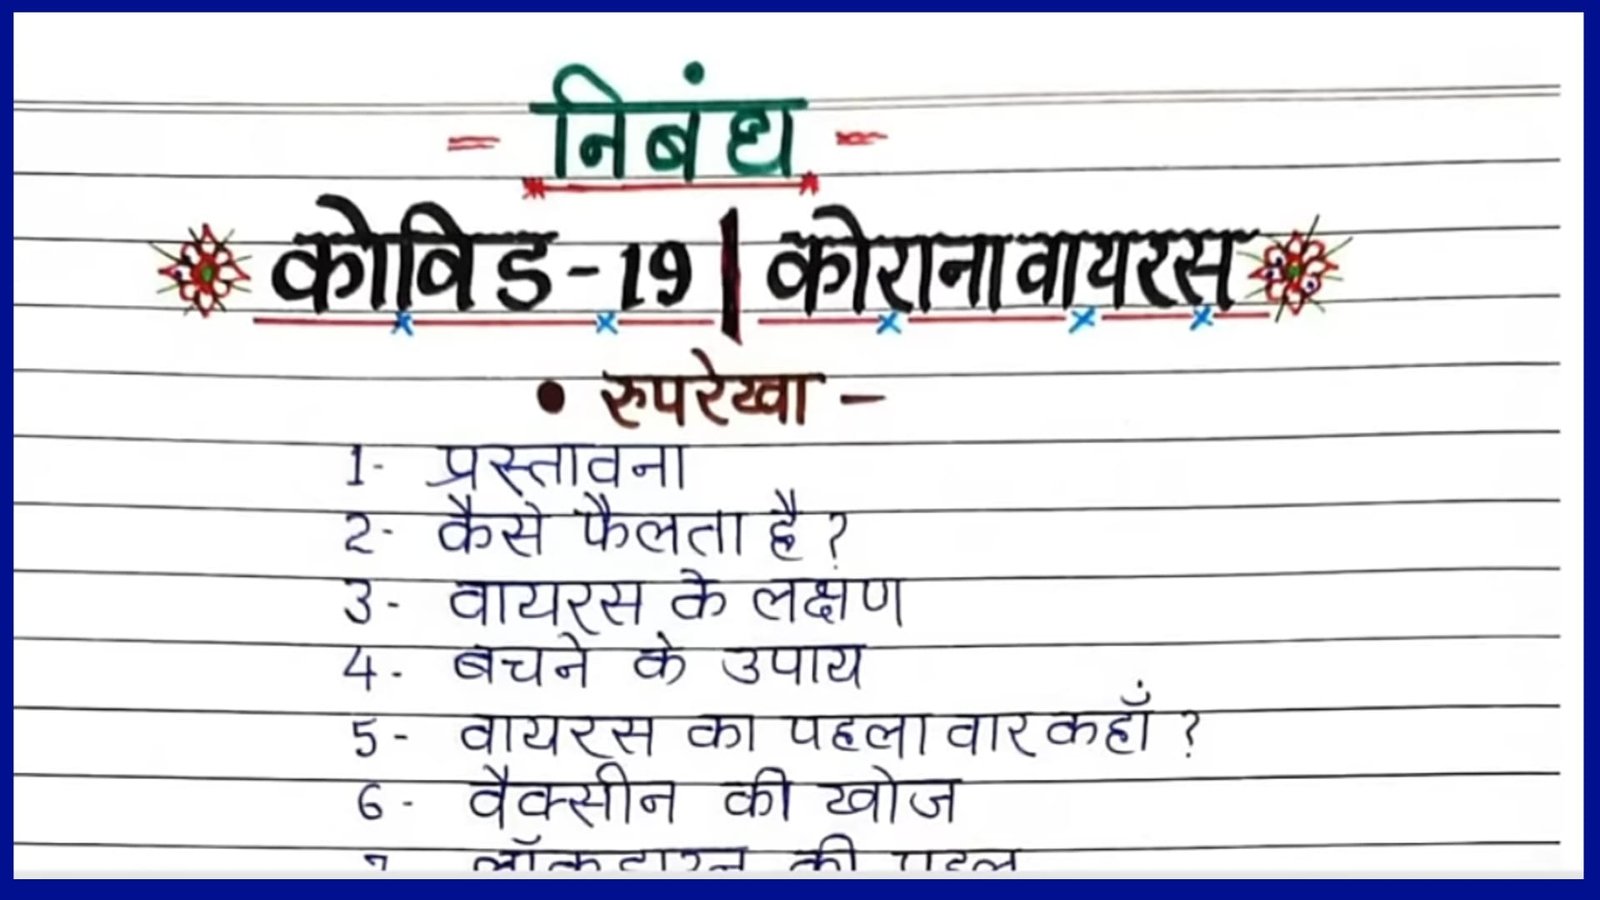 - निबंध -
कोविड-19 | कोरानावायरस
• रुपरेखा -
1- प्रस्तावना
2- कैसे फैलता है?
3- वायरस के लक्षण
4- बचने के उपाय
5- वायरस का पहला वार कहाँ?
6- वैक्सीन की खोज